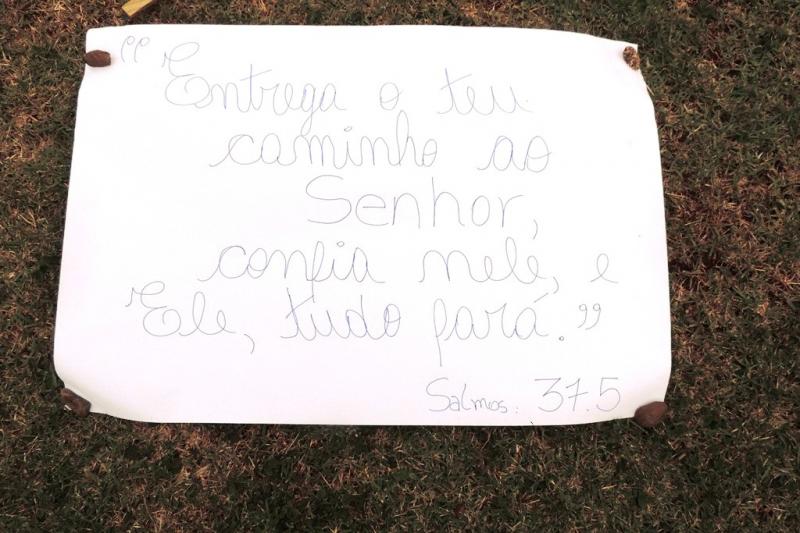 “Entrega o teu
caminho ao
Senhor,
confia nele, e
Ele, tudo fará.”
Salmos: 37.5